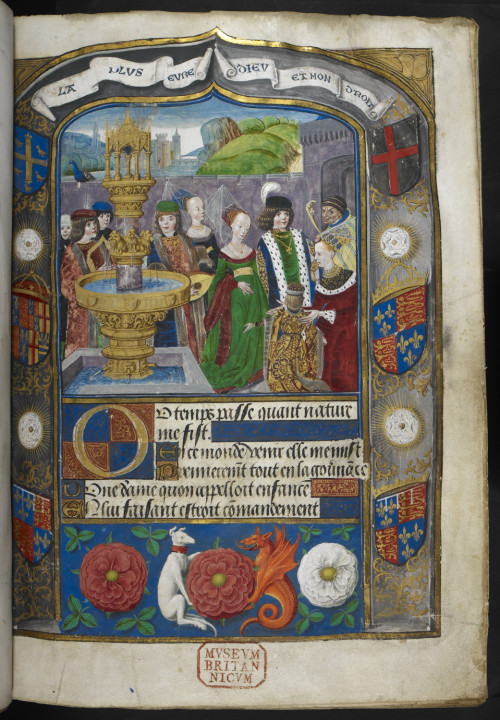 LA PLUS EURE DIEU ET MON DROIT
Ou temps passe quant nature
me fist
En ce monde venir elle me mist
Premierement tout en la gouuãce
Dune dame quon appelloit enfance
En lui faisant estroit comandement
MVSEVM
BRITAN
NICVM